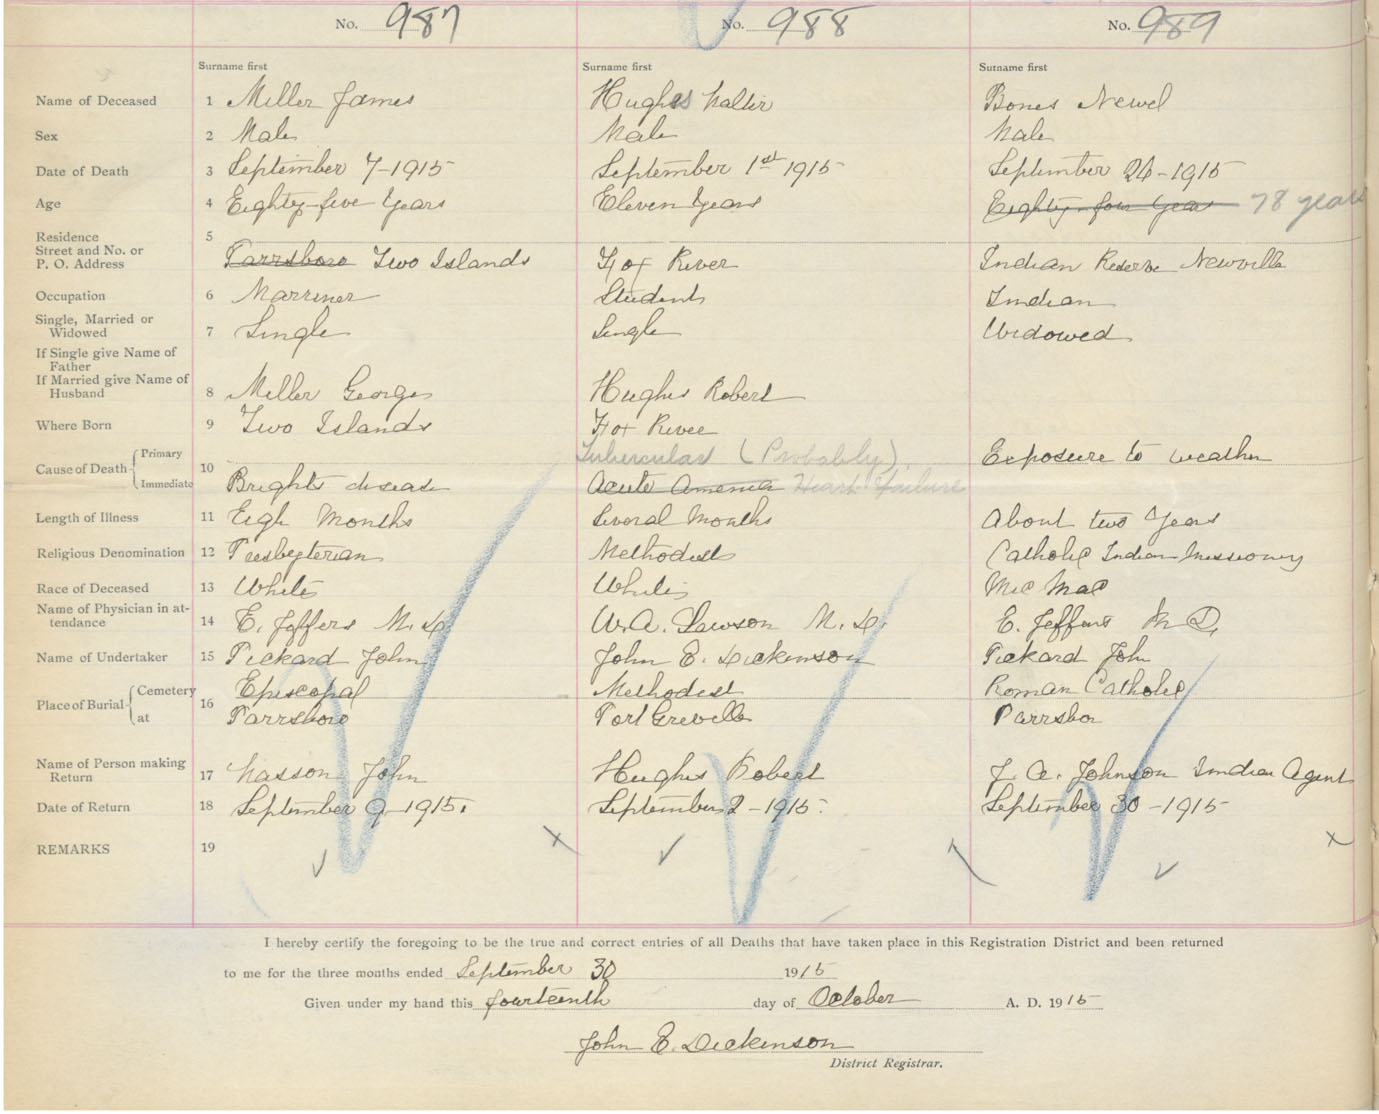 No. 987 No. 988 No. 989
Surname first Surname first Surname first
Name of Deceased 1 Miller James Hughes Walter Bones Newel
Sex 2 Male Male Male
Date of Death 3 September 7-1915 September 1st 1915 September 24-1915
Age 4 Eighty-five Years Eleven Years Eighty-four Years 78 years
Residence 5
Street and No. or
P. O. Address Parrsboro Two Islands Fox River Indian Reserve Newville
Occupation 6 Marriner Student Indian
Single, Married or
Widowed 7 Single Single Widowed
If Single give Name of
Father
If Married give Name of
Husband 8 Miller George Hughes Robert
Where Born 9 Two Islands Fox River
Cause of Death Primary 10 Tubercular (Probably) Exposure to weather
Immediate Brights disease Acute Amenia Heart Failure
Length of Illness 11 Eigh Months Several Months About two Years
Religious Denomination 12 Presbyterian Methodist Catholic Indian Missionary
Race of Deceased 13 White White Mic Mac
Name of Physician in at-
tendance 14 E. Jeffers M.D. W.A. Lawson M.D. E. Jeffers M D.
Name of Undertaker 15 Pickard John John E. Dickinson Pickard John
Place of Burial Cemetery 16 Episcopal Methodist Roman Catholic
at Parrsboro Port Greville Parrsbor
Name of Person making
Return 17 Wasson John Hughes Robert J. A. Johnson Indian Agent
Date of Return 18 September 9-1915. September 2-1915. September 30-1915
REMARKS 19
I hereby certify the foregoing to be the true and correct entries of all Deaths that have taken place in this Registration District and been returned
to me for the three months ended September 30 1915
Given under my hand this fourteenth day of October A. D. 1915
John E. Dickinson
District Registrar.